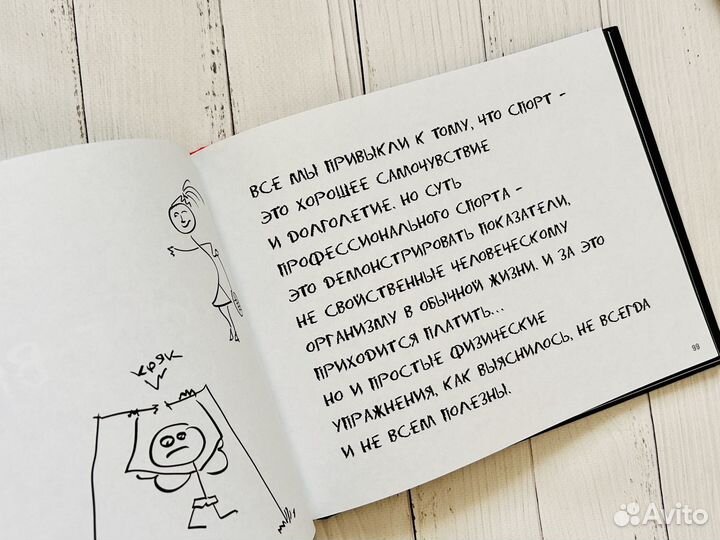 кряк
ВСЕ МЫ ПРИВЫКЛИ К ТОМУ, ЧТО СПОРТ –
ЭТО ХОРОШЕЕ САМОЧУВСТВИЕ
И ДОЛГОЛЕТИЕ. НО СУТЬ
ПРОФЕССИОНАЛЬНОГО СПОРТА –
ЭТО ДЕМОНСТРИРОВАТЬ ПОКАЗАТЕЛИ,
НЕ СВОЙСТВЕННЫЕ ЧЕЛОВЕЧЕСКОМУ
ОРГАНИЗМУ В ОБЫЧНОЙ ЖИЗНИ. И ЗА ЭТО
ПРИХОДИТСЯ ПЛАТИТЬ...
НО И ПРОСТЫЕ ФИЗИЧЕСКИЕ
УПРАЖНЕНИЯ, КАК ВЫЯСНИЛОСЬ, НЕ ВСЕГДА
И НЕ ВСЕМ ПОЛЕЗНЫ.
99
Avito